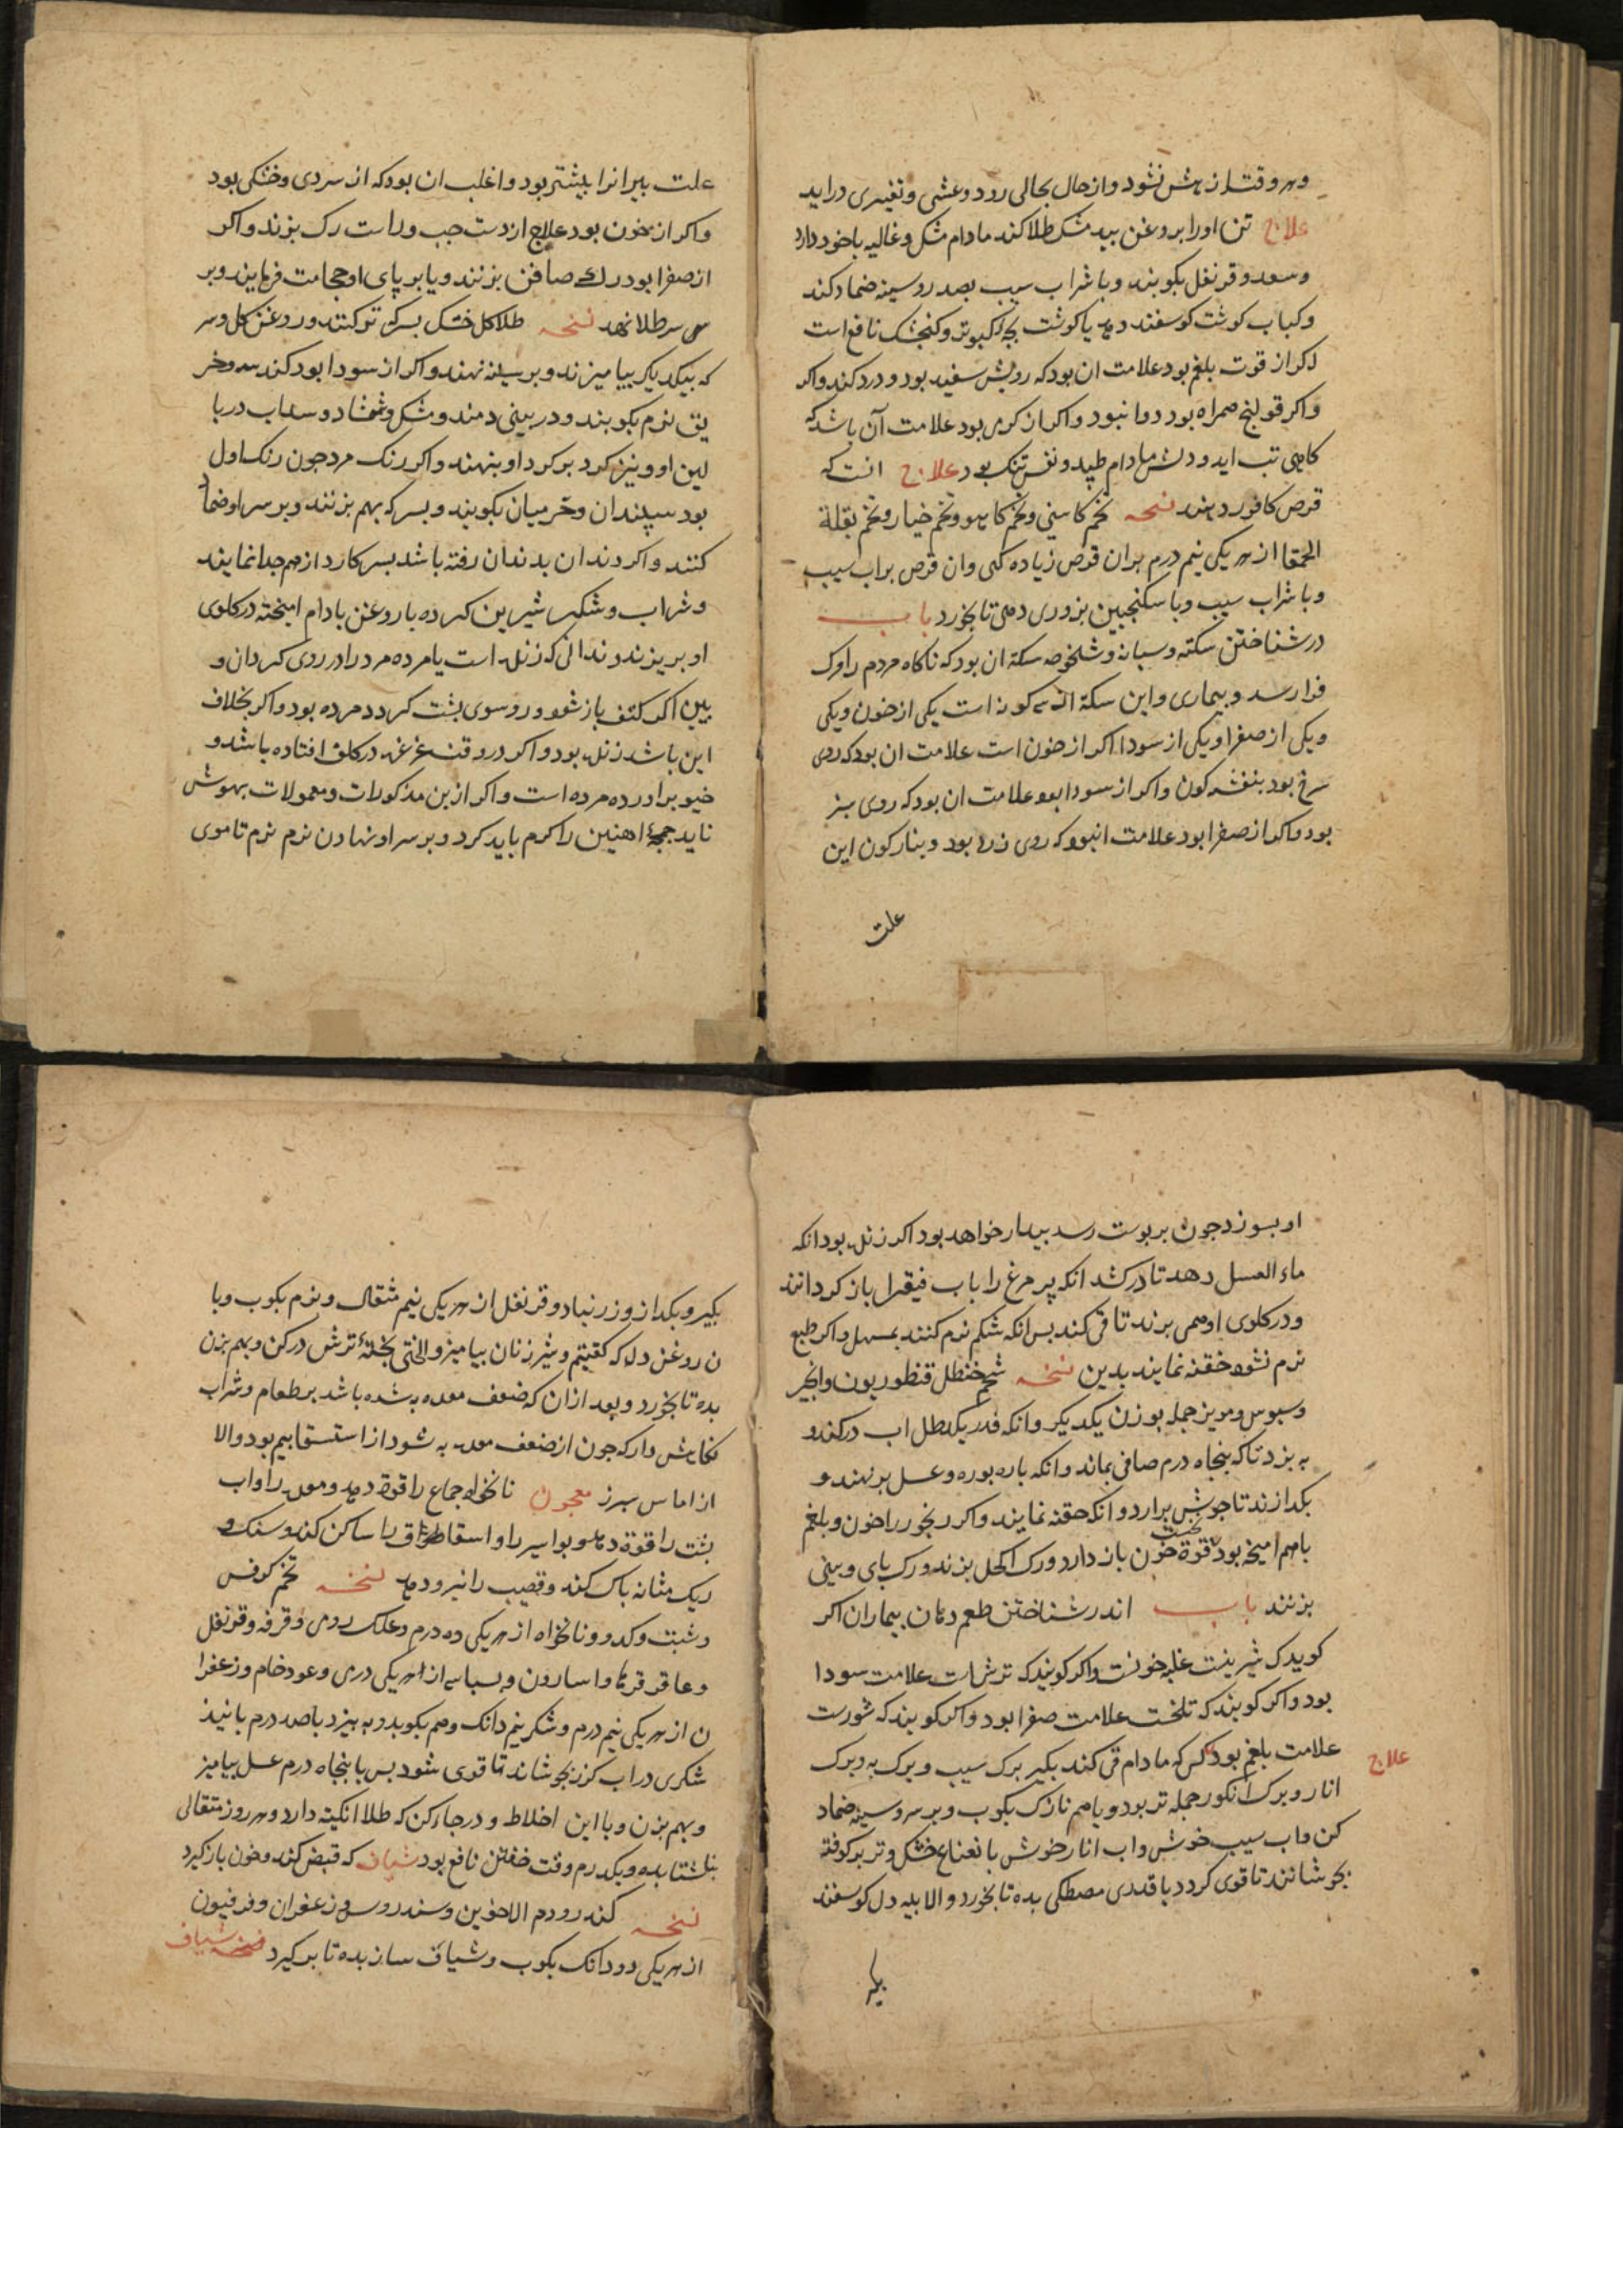 و هر وقت از هش نشود و از حال بحالی رود و غشی و تغیری دراید
علاج تن او را بروغن بید مشک طلا کند مادام مشک و غالیه باخود دارد
و سعد و قرنفل بکوبند و با شراب سیب بصدر و سینه ضماد کند
و کباب کوشت کوسفند دهد یا کوشت بچه کبوتر و کنجشک نافع است
اکر از قوت بلغم بود علامت ان بود که رویش سفید بود و درد کند و اکر
و اکر قولنج همراه بود روا نبود و اکر از کرمی بود علامت آن باشد که
کاهی تب اید و دلش مادام طپد و نفس تنک بود علاج انست که
قرص کافور دهند نسخه تخم کاسنی و تخم کاهو و تخم خیار و تخم بقلة
الحمقا از هر یکی نیم درم بران قرص زیاده کنی وان قرص براب سیب
و با شراب سیب و با سکنجبین بزوری دهی تا بخورد باب
در شناختن سکته و سبات و شخوصه سکته ان بود که ناکاه مردم را مرک
فرا رسد و بیماری و این سکته از سه کونه است یکی از خون و یکی
و یکی از صفرا و یکی از سودا اکر از خون است علامت ان بود که روی
سرخ بود بنفشه کون و اکر از سودا بود علامت ان بود که روی سبز
بود و اکر از صفرا بود علامت انبود که روی زرد بود و بنارکون این
علت
علت پیرانرا بیشتر بود و اغلب ان بود که از سردی و خشکی بود
و اکر از خون بود علاج از دست چپ و راست رک بزند و اکر
از صفرا بود رک صافن بزنند و یا بر پای او حجامت فرمایند و بر
سر طلا نهد نسخه طلا کل خشک بسرکه تر کنند و روغن کل و سر
که بیکدیکر بیامیزند و بر سینه نهند و اکر از سودا بود کندسه و خر
بق نرم بکوبند و در بینی دمند و مشک و شمشاد و سداب در با
لین او و نیز کرد بر کرد او بنهند و اکر رنک مرد چون رنک اول
بود سپندان و خرمیان بکوبند و بسرکه بهم بزنند و بر سر او ضما
کنند و اکر دندان بدندان رفته باشد بسر کارد از هم جدا نمایند
و شراب و شکر شیرین کرده با روغن بادام امیخته در کلوی
او بریزند و ندانی که زنده است یا مرده مرد را در روی کردان و
ببین اکر کتف باز شود و رو سوی پشت کردد مرده بود و اکر بخلاف
این باشد زنده بود و اکر در وقت غرغره در کلف افتاده باشد و
خیو برآورده مرده است و اکر ازین مذکورات و معمولات بهوش
ناید جمچه اهنین را کرم باید کرد و بر سر او نهادن نرم نرم تا موی
او بسوزد چون بر پوست رسد بیدار خواهد بود اکر زنده بود انکه
ماء العسل دهد تا درکشد انکه پر مرغ را باب فیقرا باز کردانند
و در کلوی او همی برند تا قی کند بس انکه شکم نرم کنند بمسهل و اکر طبع
نرم نشود حقنه نمایند بدین نسخه شحم حنظل قنطوریون و انجیر
و سبوس و مویز جمله بوزن یکدیکر و انکه قدر یکرطل اب درکند و
به پزد تا که پنجاه درم صافی بماند و انکه پاره بوره و عسل برنهند و
بکدازند تا جوش برارد و انکه حقنه نمایند و اکر رنجور را خون و بلغم
باهم امیخه بود نخست قوة خون باز دارد و رک اکحل بزند و رک پای و بینی
بزنند باب اندر شناختن طعم دهان بیماران اکر
کوید که شیرینست غلبه خونست و اکر کویند که ترش است علامت سودا
بود و اکر کویند که تلخست علامت صفرا بود و اکر کویند که شورست
علامت بلغم بود کس که مادام قی کند بکیر برک سیب و برک به و برک
علاج
انار و برک انکور جمله تر بود و باهم نازک بکوب و بر سر و سینه ضماد
کن و اب سیب خوش و اب انار خوش با نعناع خشک و تر بر کوفته
بجوشانند تا قوی کردد با قدری مصطکی بده تا بخورد و الا بیه دل کوسفند
بکیر
بکیر و بکداز و زرنباد و قرنفل از هر یکی نیم مثقال و نرم بکوب و با
ن روغن دله که کفتیم و شیر زنان بیامیز و لختی پختهٔ ترش درکن و بهم بزن
بده تا بخورد و بعد ازان که ضعف معده به شده باشد بر طعام و شراب
نکاهش دار که چون از ضعف معده به شود از استسقا بیم بود و الا
از اماس سپرز معجون نانخواه جماع را قوة دهد و معده را و اب
پشت را قوة دهد و بواسیر را و اسقاط و فواق را ساکن کند و سنک و
ریک مثانه پاک کند و قضیب را نیرو دهد نسخه تخم کرفس
و شبت و کدو و نانخواه از هر یکی ده درم و علک رومی و قرفه و قرنفل
و عاقر قرحا و اسارون و بسباسه از هر یکی درمی و عود خام و زعفرا
ن از هر یکی نیم درم و شکر نیم دانک و هم بکوبد و به بیزد با صد درم پانیذ
شکری در اب کزر بجوشاند تا قوی شود بس با پنجاه درم عسل بیامیز
و بهم بزن و با این اخلاط و در جاء کن که طلا انکینه دارد و هر روز مثقالی
بناشتا بده و یکدرم وقت خفتن نافع بود شیاف که قبض کند و خون باز کیرد
نسخه کندر و دم الاخوین و سندروس و زعفران و فرفیون
از هر یکی دو دانک بکوب و شیاف ساز بده تا برکیرد نسخه شیاف